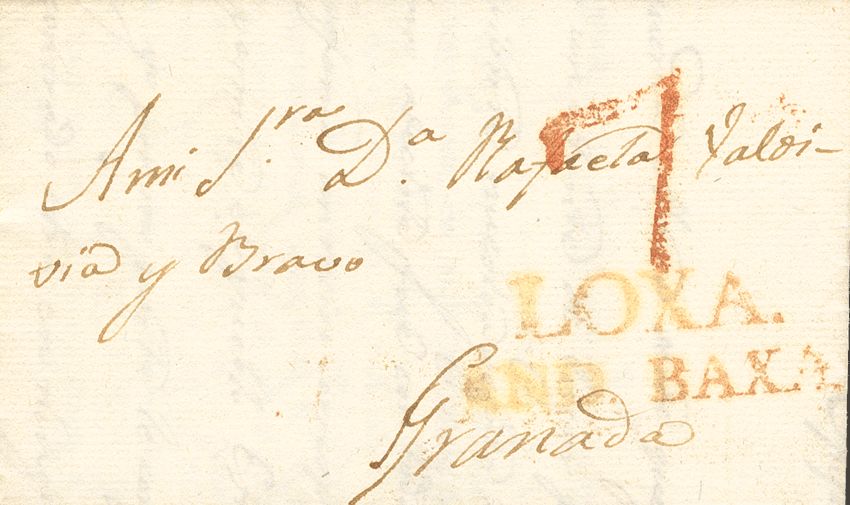 A mi S.ra D.a Rafaela Valdi-
via y Bravo
7
LOXA.
AND. BAXA
Granada